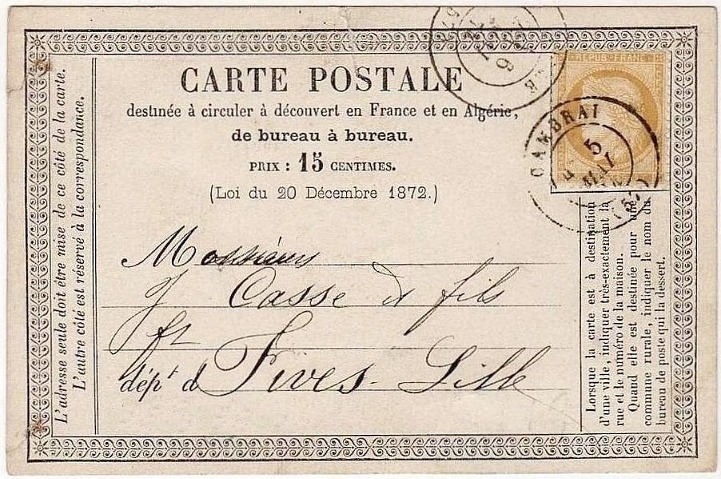 CARTE POSTALE
destinée à circuler à découvert en France et en Algérie,
de bureau à bureau.
PRIX : 15 CENTIMES.
(Loi du 20 Décembre 1872.)
REPUB. FRANC.
CAMBRAI
5
MAI
Messieurs
J Casse & fils
dépt d
Fives-Lille
L'adresse seule doit être mise de ce côté de la carte.
L'autre côté est réservé à la correspondance.
Lorsque la carte est à destination
d'une ville, indiquer très-exactement la
rue et le numéro de la maison.
Quand elle est destinée pour une
commune rurale, indiquer le nom du
bureau de poste qui la dessert.